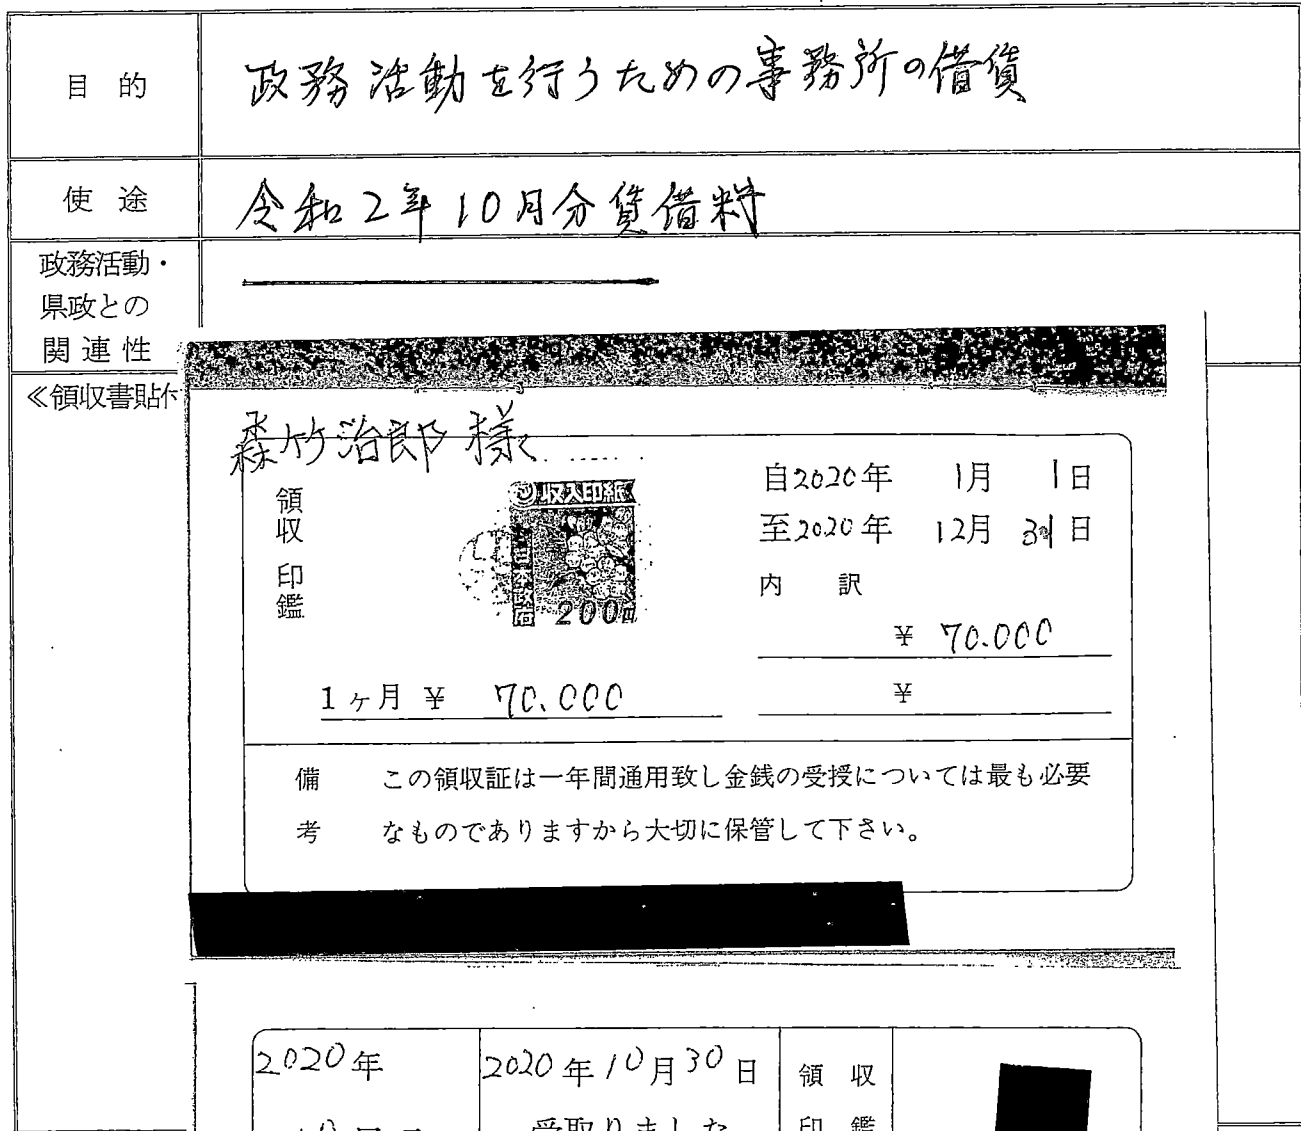 目的
政務活動を行うための事務所の借賃
使途
令和2年10月分賃借料
政務活動・
県政との
関連性
≪領収書貼付
森竹治郎 様
領収印鑑
収入印紙
日本政府
200円
自2020年 1月 1日
至2020年 12月 31日
内訳
¥ 70.000
1ヶ月 ¥ 70.000
¥
備考
この領収証は一年間通用致し金銭の受授については最も必要
なものでありますから大切に保管して下さい。
2020年
2020年10月30日
領収
受取りました
印鑑